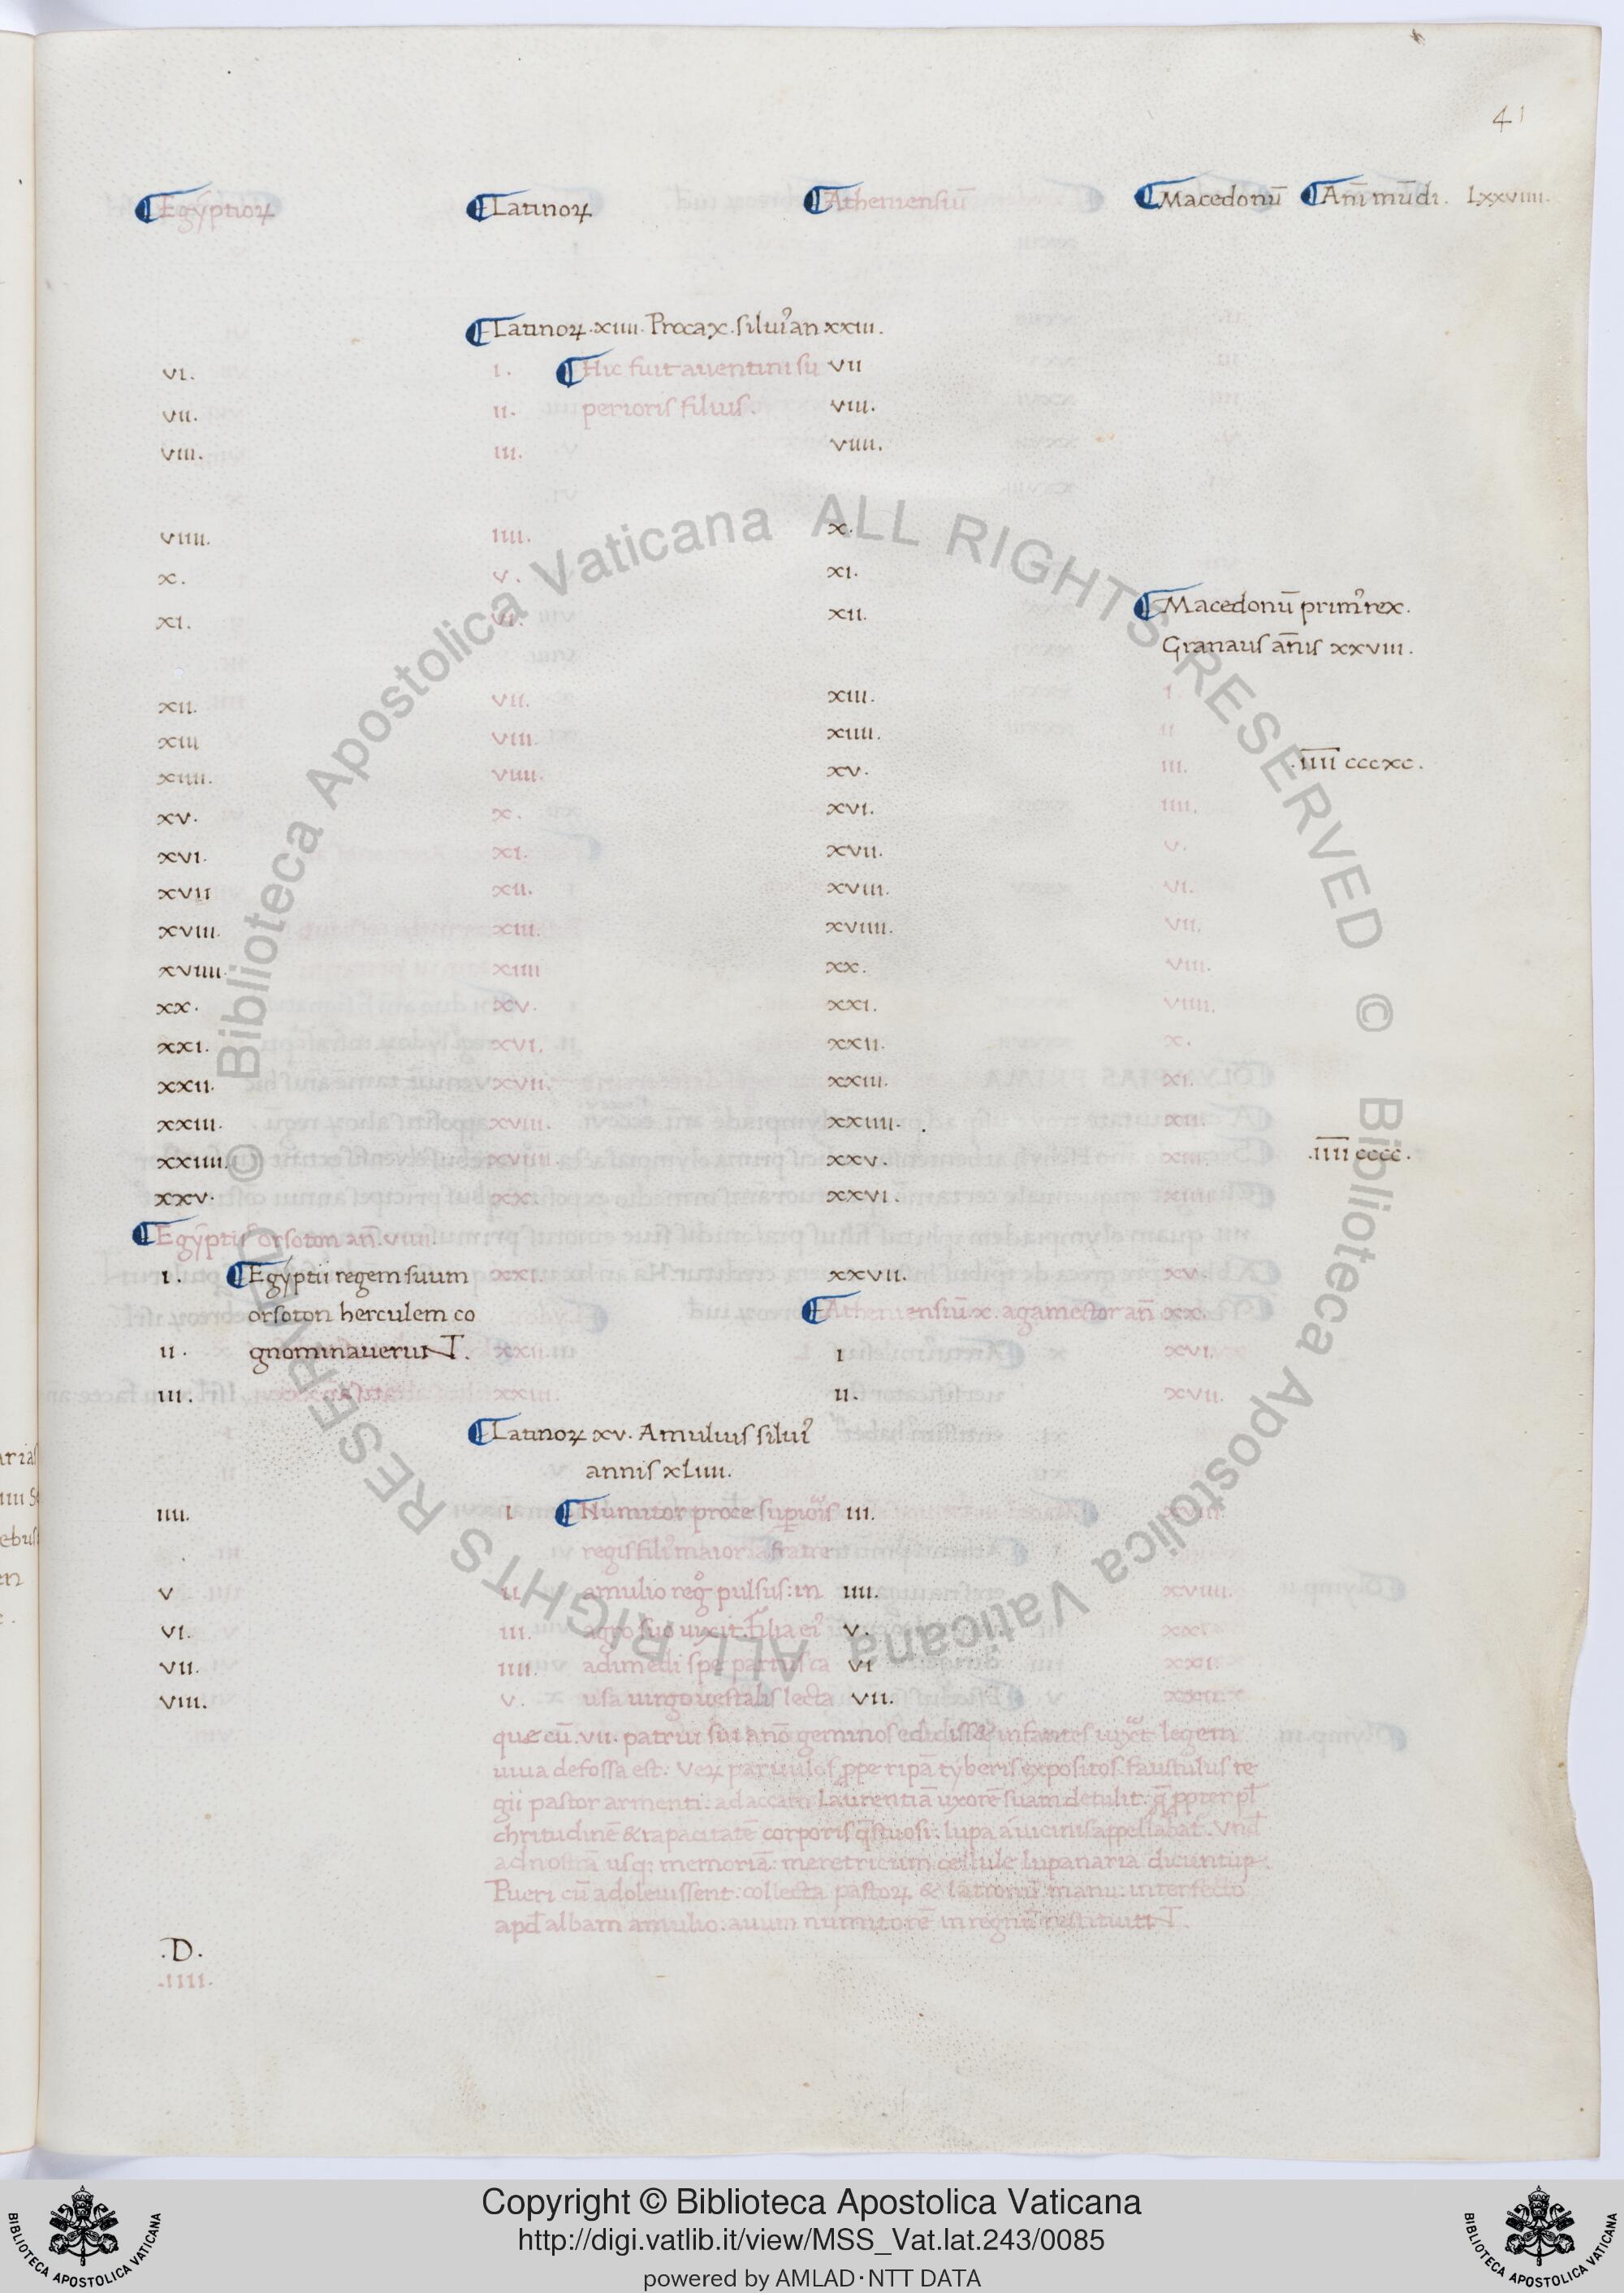 41
Egyptioꝝ Latinoꝝ Atheniensiū Macedonū Añi mūdi. Lxxviiii.
Latinoꝝ .xiiii. Procax. silui⁹ an xxiii.
vi. i. Hic fuit auentini su vii
vii. ii. perioris filius. viii.
viii. iii. viiii.
viiii. iiii. x.
x. v. xi.
xi. vi. xii. Macedonū prim⁹ rex.
Granaus añis xxviii.
xii. vii. xiii. i.
xiii viii. xiiii. ii
xiiii. viiii. xv. iii. .iiii cccxc.
xv. x. xvi. iiii.
xvi. xi. xvii. v.
xvii xii. xviii. vi.
xviii. xiii. xviiii. vii.
xviiii. xiiii xx. viii.
xx. xv. xxi. viiii.
xxi. xvi. xxii. x.
xxii. xvii. xxiii. xi.
xxiii. xviii. xxiiii. xii.
xxiiii. xviiii. xxv. xiii. .iiii cccc.
xxv. xx. xxvi. xiiii.
Egyptis orsoton añ. viiii.
i. Egyptii regem suum xxi. xxvii. xv.
orsoton herculem co Atheniensiū. x. agamestor añ xx.
ii. gnominauerunT. xxii. i xvi.
iii. xxiii. ii. xvii.
Latinoꝝ xv. Amulius silui⁹
annis xLiiii.
iiii. i Numitor proce supioris iii. xviii.
regis fili⁹ maior a fratre
v ii amulio reg° pulsus: in iiii. xviiii.
vi. iii. agro suo uixit. filia ei⁹ v. xx.
vii. iiii. adimedi spe partus ca vi xxi.
viii. v. usa uirgo uestalis lecta vii. xxii.
que cū .vii. patrui sui año geminos edidisset infantes iuxta legem
uiua defossa est. Veꝝ paruulos ppe ripā tyberis expositos. faustulus re
gii pastor armenti: ad accam Laurentiā uxorē suam detulit: q̄ ppter pl
chritudinē & rapacitatē corporis q̄stuosi: lupa a uicinis appellabat. Vnd
ad nostrā usq: memoriā: meretricum cellule lupanaria dicuntur.
Pueri cū adoleuissent: collecta pastoꝝ & latronū manu: interfecto
apđ albam amulio: auum numitorē in regnū restituunT.
.D.
.iiii.
© Biblioteca Apostolica Vaticana ALL RIGHTS RESERVED © Biblioteca Apostolica Vaticana ALL RIGHTS RESERVED
Copyright © Biblioteca Apostolica Vaticana
http://digi.vatlib.it/view/MSS_Vat.lat.243/0085
powered by AMLAD·NTT DATA
BIBLIOTECA APOSTOLICA VATICANA
BIBLIOTECA APOSTOLICA VATICANA